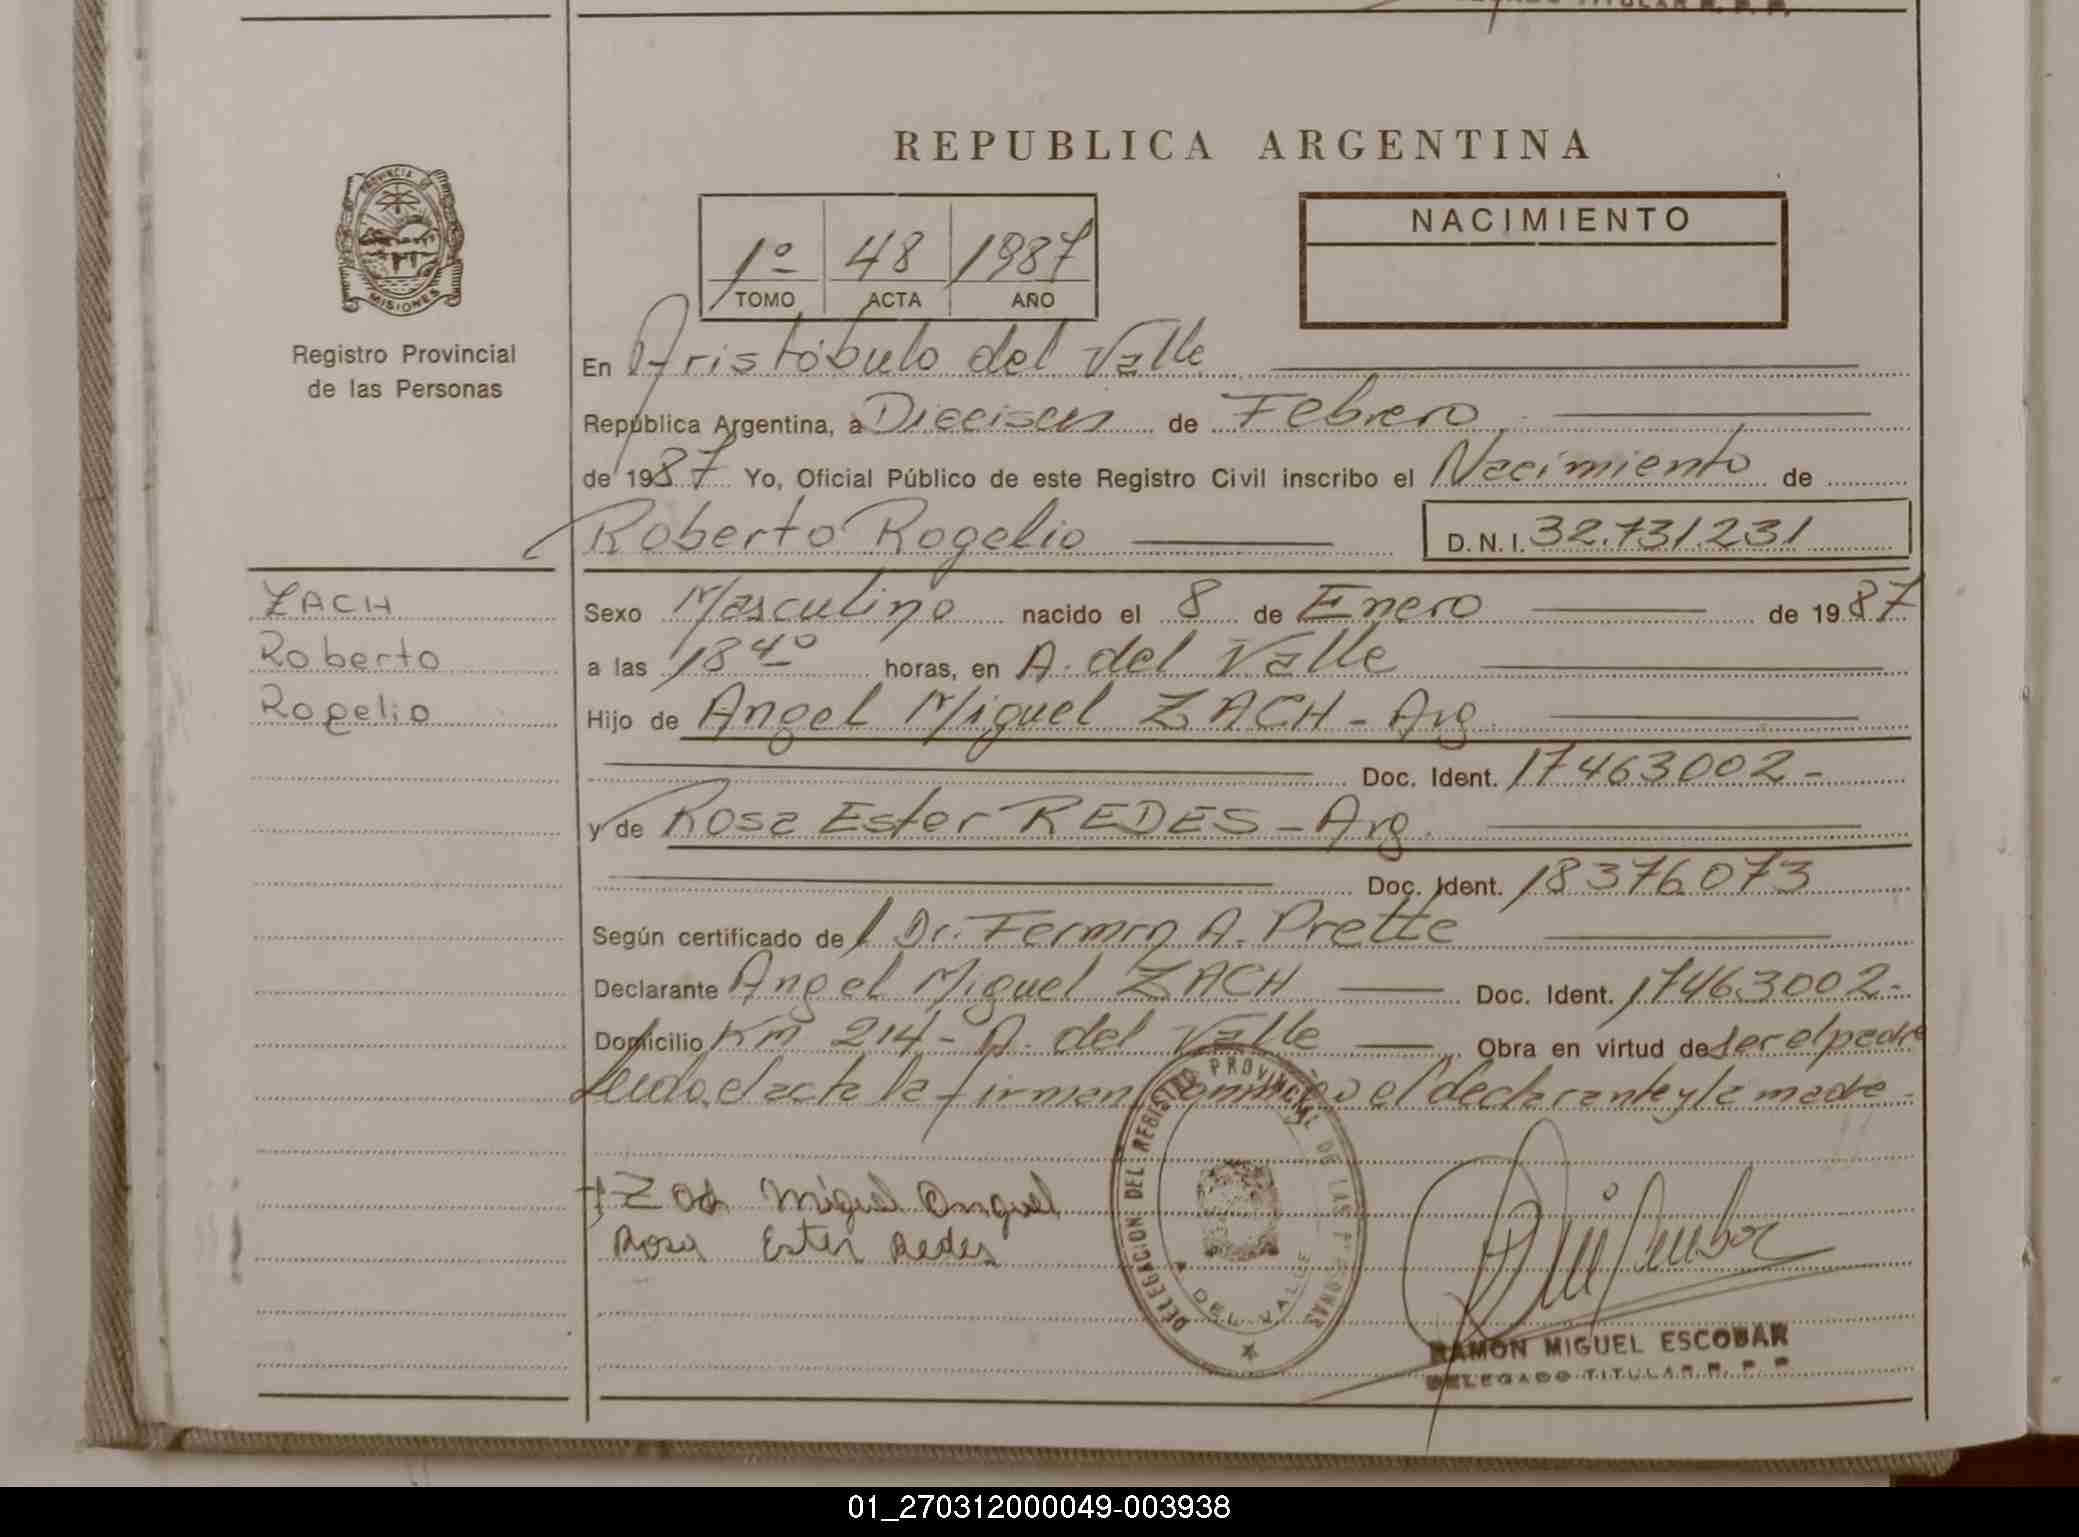 REPUBLICA ARGENTINA
PROVINCIA DE MISIONES
Registro Provincial
de las Personas
1º 48 1987
TOMO ACTA AÑO
NACIMIENTO
En Aristóbulo del Valle
República Argentina, a Dieciseis de Febrero
de 1987 Yo, Oficial Público de este Registro Civil inscribo el Nacimiento de
Roberto Rogelio D.N.I. 32.731.231
ZACH
Roberto
Rogelio
Sexo Masculino nacido el 8 de Enero de 1987
a las 18 40 horas, en A. del Valle
Hijo de Angel Miguel ZACH - Arg.
Doc. Ident. 17463002-
y de Rosa Ester REDES - Arg.
Doc. Ident. 18376073
Según certificado del Dr. Fermin A. Prette
Declarante Angel Miguel ZACH Doc. Ident. 17463002-
Domicilio Km 214 - A. del Valle Obra en virtud de ser el padre
Leida el acta la firman conmigo el declarante y la madre -
Zach Miguel Anguel
Rosa Ester Redes
DELEGACION DEL REGISTRO PROVINCIAL DE LAS PERSONAS
DEL VALLE
RAMON MIGUEL ESCOBAR
DELEGADO TITULAR R. P. P.
01_270312000049-003938